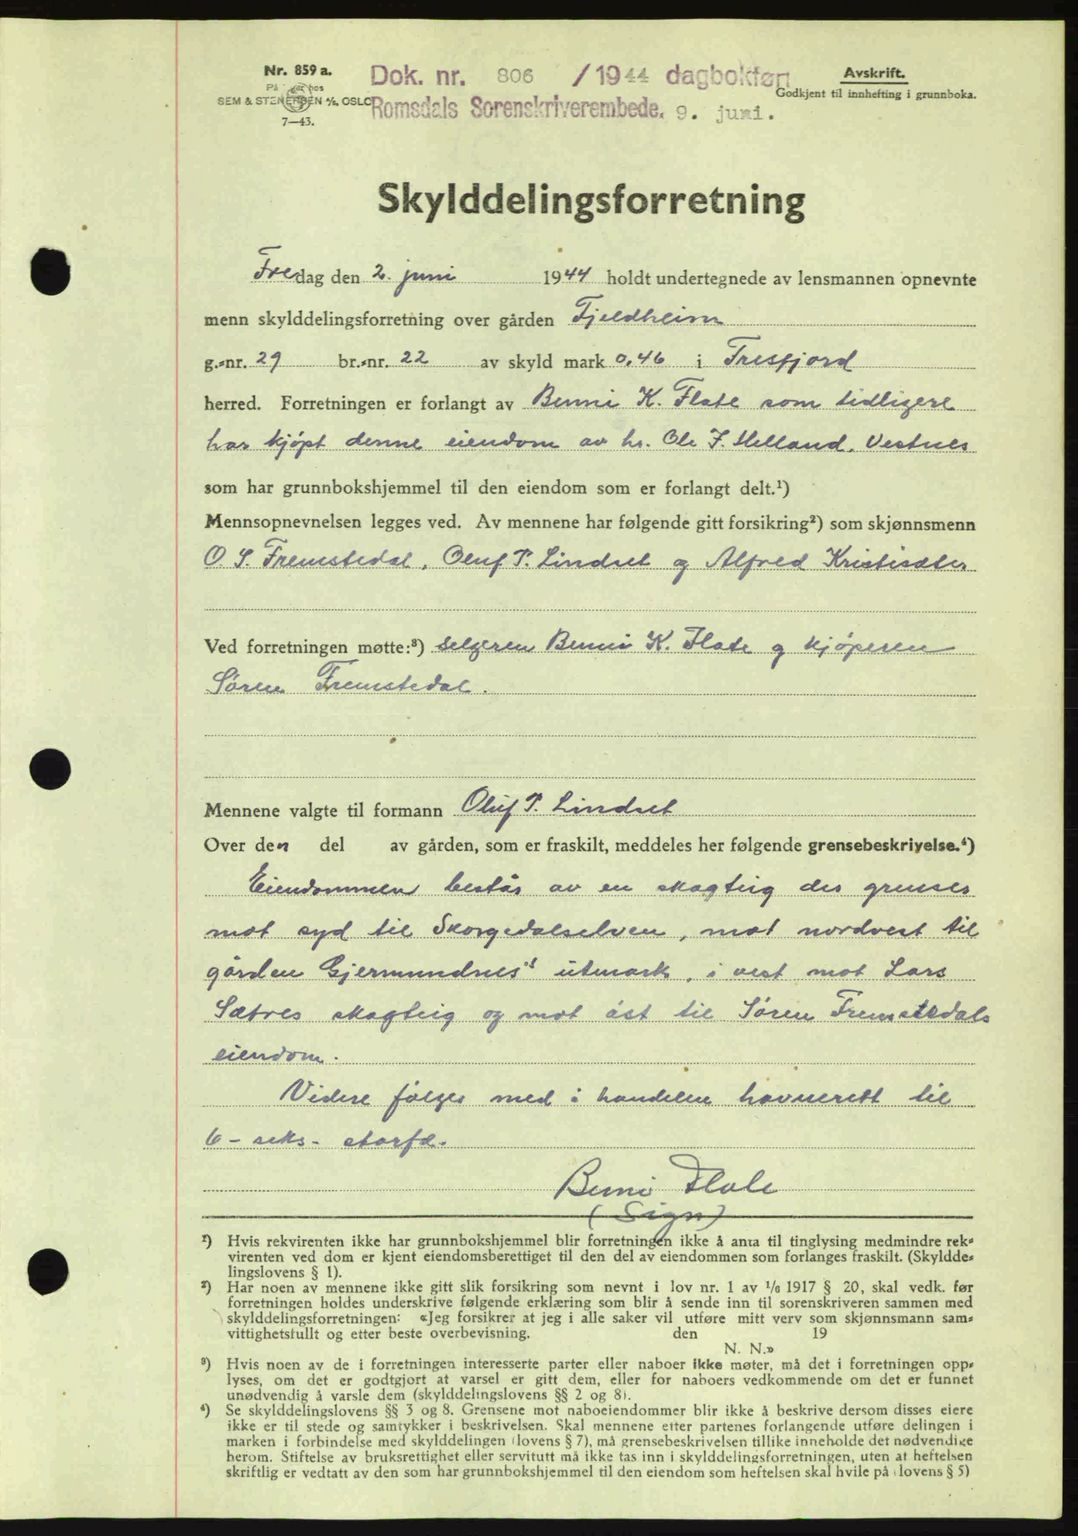 Nr. 859 a.
På lager hos
SEM & STENERSEN A/S, OSLO
7—43.
Dok. nr. 806 /1944 dagbokført
Romsdals Sorenskriverembede. 9. juni.
Avskrift.
Godkjent til innhefting i grunnboka.
Skylddelingsforretning
Fredag den 2. juni 1944 holdt undertegnede av lensmannen opnevnte
menn skylddelingsforretning over gården Fjeldheim
g.-nr. 29 br.-nr. 22 av skyld mark 0.46 i Tresfjord
herred. Forretningen er forlangt av Benni K. Flate som tidligere
har kjøpt denne eiendom av hr. Ole J. Helland, Vestnes
som har grunnbokshjemmel til den eiendom som er forlangt delt.¹)
Mennsopnevnelsen legges ved. Av mennene har følgende gitt forsikring²) som skjønnsmenn
O. S. Fremstedal, Oluf P. Lindset og Alfred Kristisæter
Ved forretningen møtte:³) selgeren Benni K. Flate og kjøperen
Søren Fremstedal.
Mennene valgte til formann Oluf P. Lindset
Over den del av gården, som er fraskilt, meddeles her følgende grensebeskrivelse.⁴)
Eiendommen består av en skogteig der grenser
mot syd til Skorgedalselven, mot nordvest til
gården Gjermundnes's utmark, i vest mot Lars
Sætres skogteig og mot øst til Søren Fremstedals
eiendom.
Videre følger med i handelen havnerett til
6 - seks - storfe.
Benni Flate
(Sign)
¹) Hvis rekvirenten ikke har grunnbokshjemmel blir forretningen ikke å anta til tinglysing medmindre rek-
virenten ved dom er kjent eiendomsberettiget til den del av eiendommen som forlanges fraskilt. (Skyldde-
lingslovens § 1).
²) Har noen av mennene ikke gitt slik forsikring som nevnt i lov nr. 1 av 1/6 1917 § 20, skal vedk. før
forretningen holdes underskrive følgende erklæring som blir å sende inn til sorenskriveren sammen med
skylddelingsforretningen: «Jeg forsikrer at jeg i alle saker vil utføre mitt verv som skjønnsmann sam-
vittighetsfullt og etter beste overbevisning. den 19
N. N.»
³) Hvis noen av de i forretningen interesserte parter eller naboer ikke møter, må det i forretningen opp-
lyses, om det er godtgjort at varsel er gitt dem, eller for naboers vedkommende om det er funnet
unødvendig å varsle dem (skylddelingslovens §§ 2 og 8).
⁴) Se skylddelingslovens §§ 3 og 8. Grensene mot naboeiendommer blir ikke å beskrive dersom disses eiere
ikke er til stede og samtykker i beskrivelsen. Skal mennene etter partenes forlangende utføre delingen i
marken i forbindelse med skylddelingen (lovens § 7), må grensebeskrivelsen tillike inneholde det nødvendige
herom. Stiftelse av bruksrettighet eller servitutt må ikke tas inn i skylddelingsforretningen, uten at heftelsen
skriftlig er vedtatt av den som har grunnbokshjemmel til den eiendom som heftelsen skal hvile på (lovens § 5)